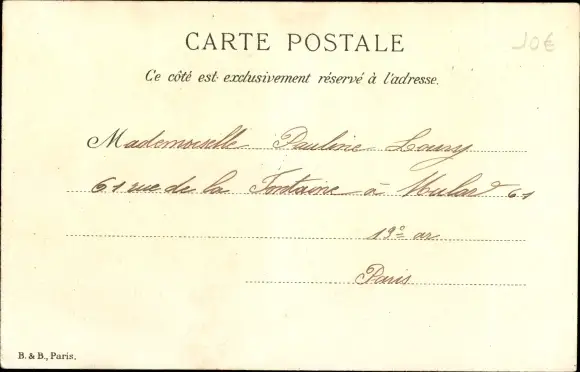 CARTE POSTALE
10€
Ce côté est exclusivement réservé à l'adresse.
Mademoiselle Pauline
61 rue de la Fontaine à Mulard 61
19e ar
Paris
B. & B., Paris.